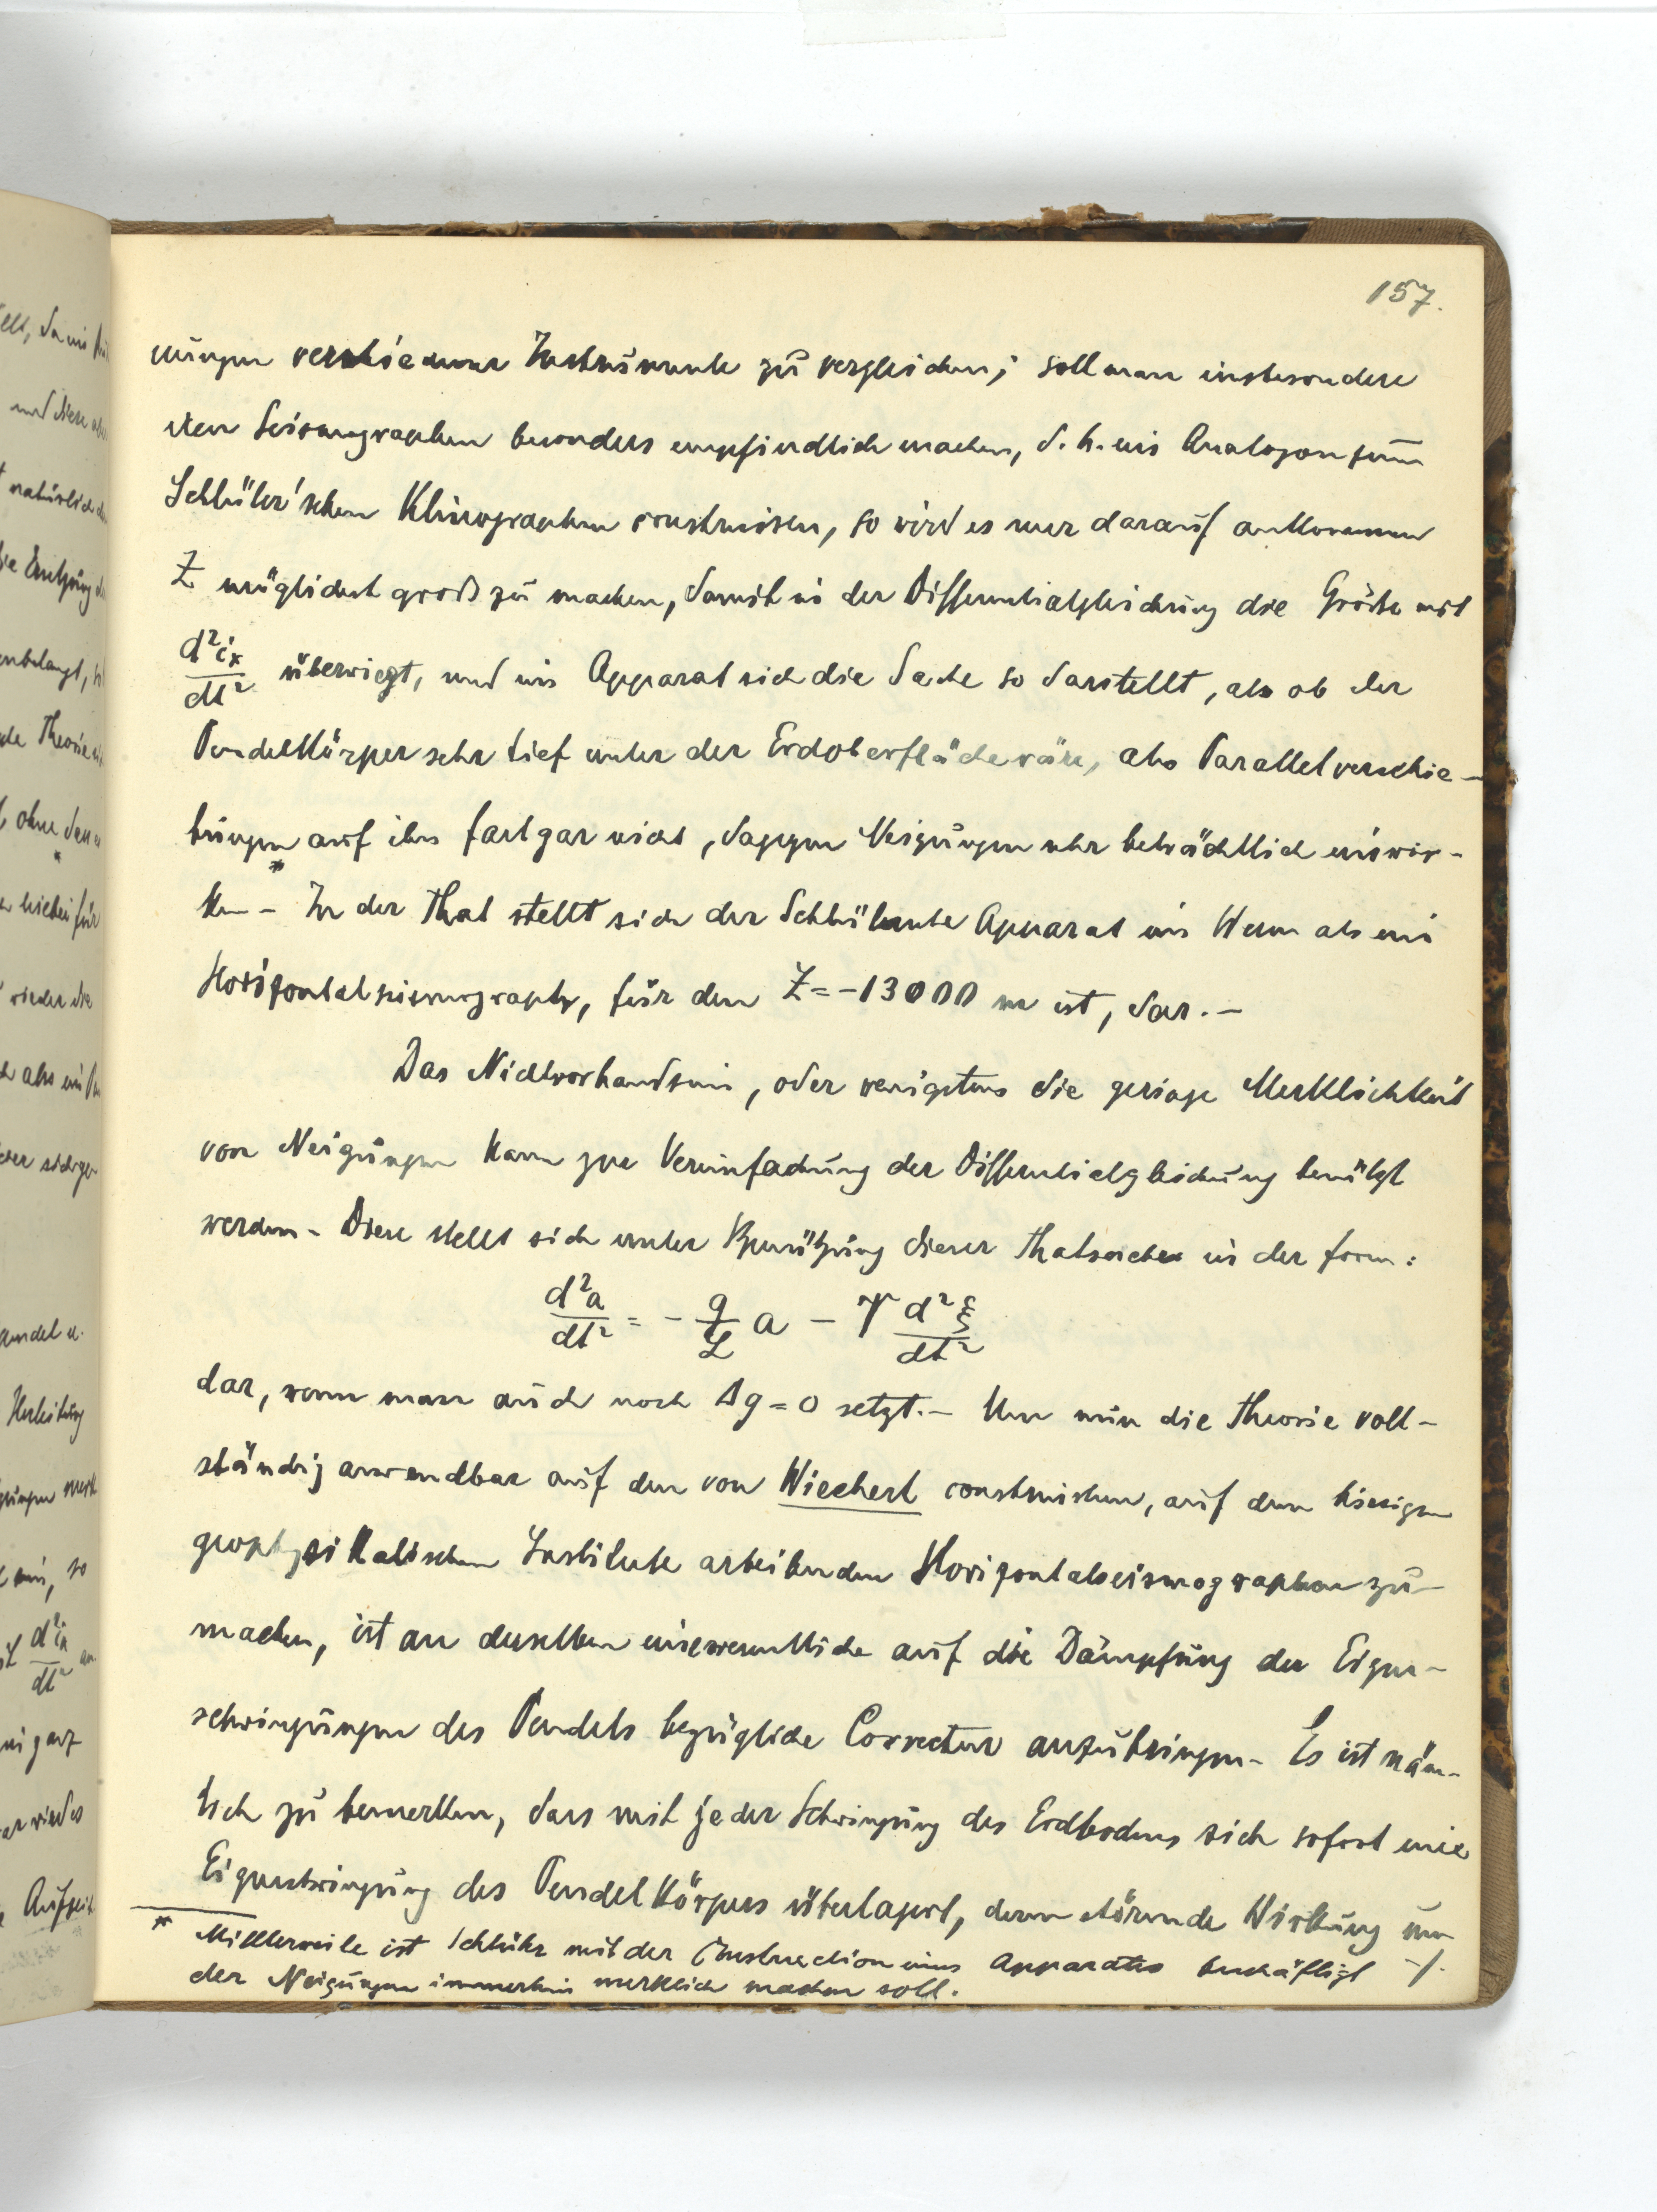 157.
nungen verschiedener Instrumente zu vergleichen; soll man insbesondere
den Seismographen besonders empfindlich machen, d. h. ein Analogon zum
Schlüter'schen Klinographen construiren, so wird es nur darauf ankommen
Z möglichst groß zu machen, damit in der Differentialgleichung die Größe mit
d²iₓ/dt² überwiegt, und im Apparat sich die Sache so darstellt, als ob der
Pendelkörper sehr tief unter der Erdoberfläche wäre, also Parallelverschie-
bungen auf ihn fast gar nicht, dagegen Neigungen sehr beträchtlich einwir-
ken* - In der That stellt sich der Schlütersche Apparat im Wesen als ein
Horizontalseismograph, für den Z = -13000 m ist, dar. -
Das Nichtvorhandsein, oder wenigstens die geringe Merklichkeit
von Neigungen kann zur Vereinfachung der Differentialgleichung benützt
werden - Diese stellt sich unter Benützung dieser Thatsache in der form:
d²a/dt² = - g/L a - V d²ξ/dt²
dar, wenn man auch noch Δg = 0 setzt. - Um nun die Theorie voll-
ständig anwendbar auf den von Wiechert construirten, auf dem hiesigen
geophysikalischen Institute arbeitenden Horizontalseismographen zu
machen, ist an derselben eine wesentliche auf die Dämpfung der Eigen-
schwingungen des Pendels bezügliche Correctur anzubringen - Es ist näm-
lich zu bemerken, dass mit jeder Schwingung des Erdbodens sich sofort eine
Eigenschwingung des Pendelkörpers überlagert, deren störende Wirkung um
-/.
* Mittlerweile ist Schlüter mit der Construction eines Apparates beschäftigt
der Neigungen immerhin merklich machen soll.